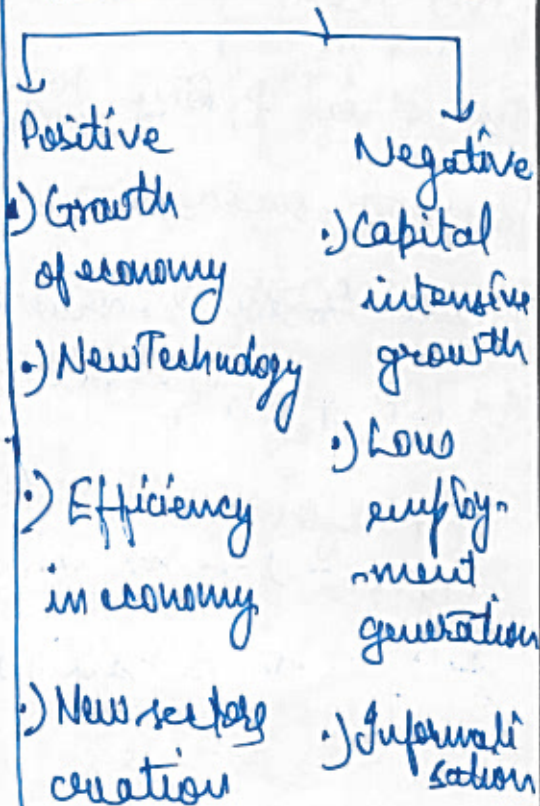 Positive
.) Growth
of economy
.) New Technology
.) Efficiency
in economy
.) New sectors
creation
Negative
.) Capital
intensive
growth
.) Low
employ-
-ment
generation
.) Informali
sation